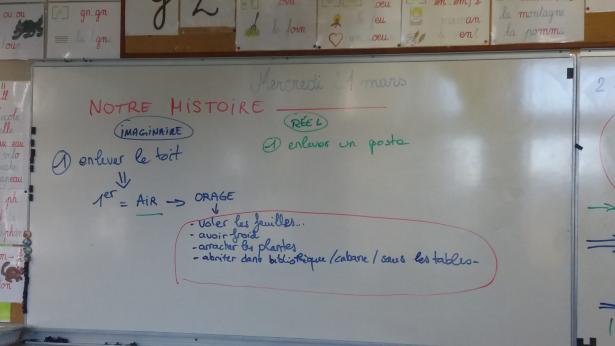 ou ou
oun
gn..gn..
..gn..
le foin
eu
..oeu..
en..em..
an
en
la montagne
la pomme
Mercredi 21 mars
NOTRE HISTOIRE
IMAGINAIRE
RÉEL
1 enlever le toit
1 enlever un poste
1er = AIR → ORAGE
- voler les feuilles...
- avoir froid
- arracher les plantes
- abriter dans bibliothèque/cabane/sous les tables-